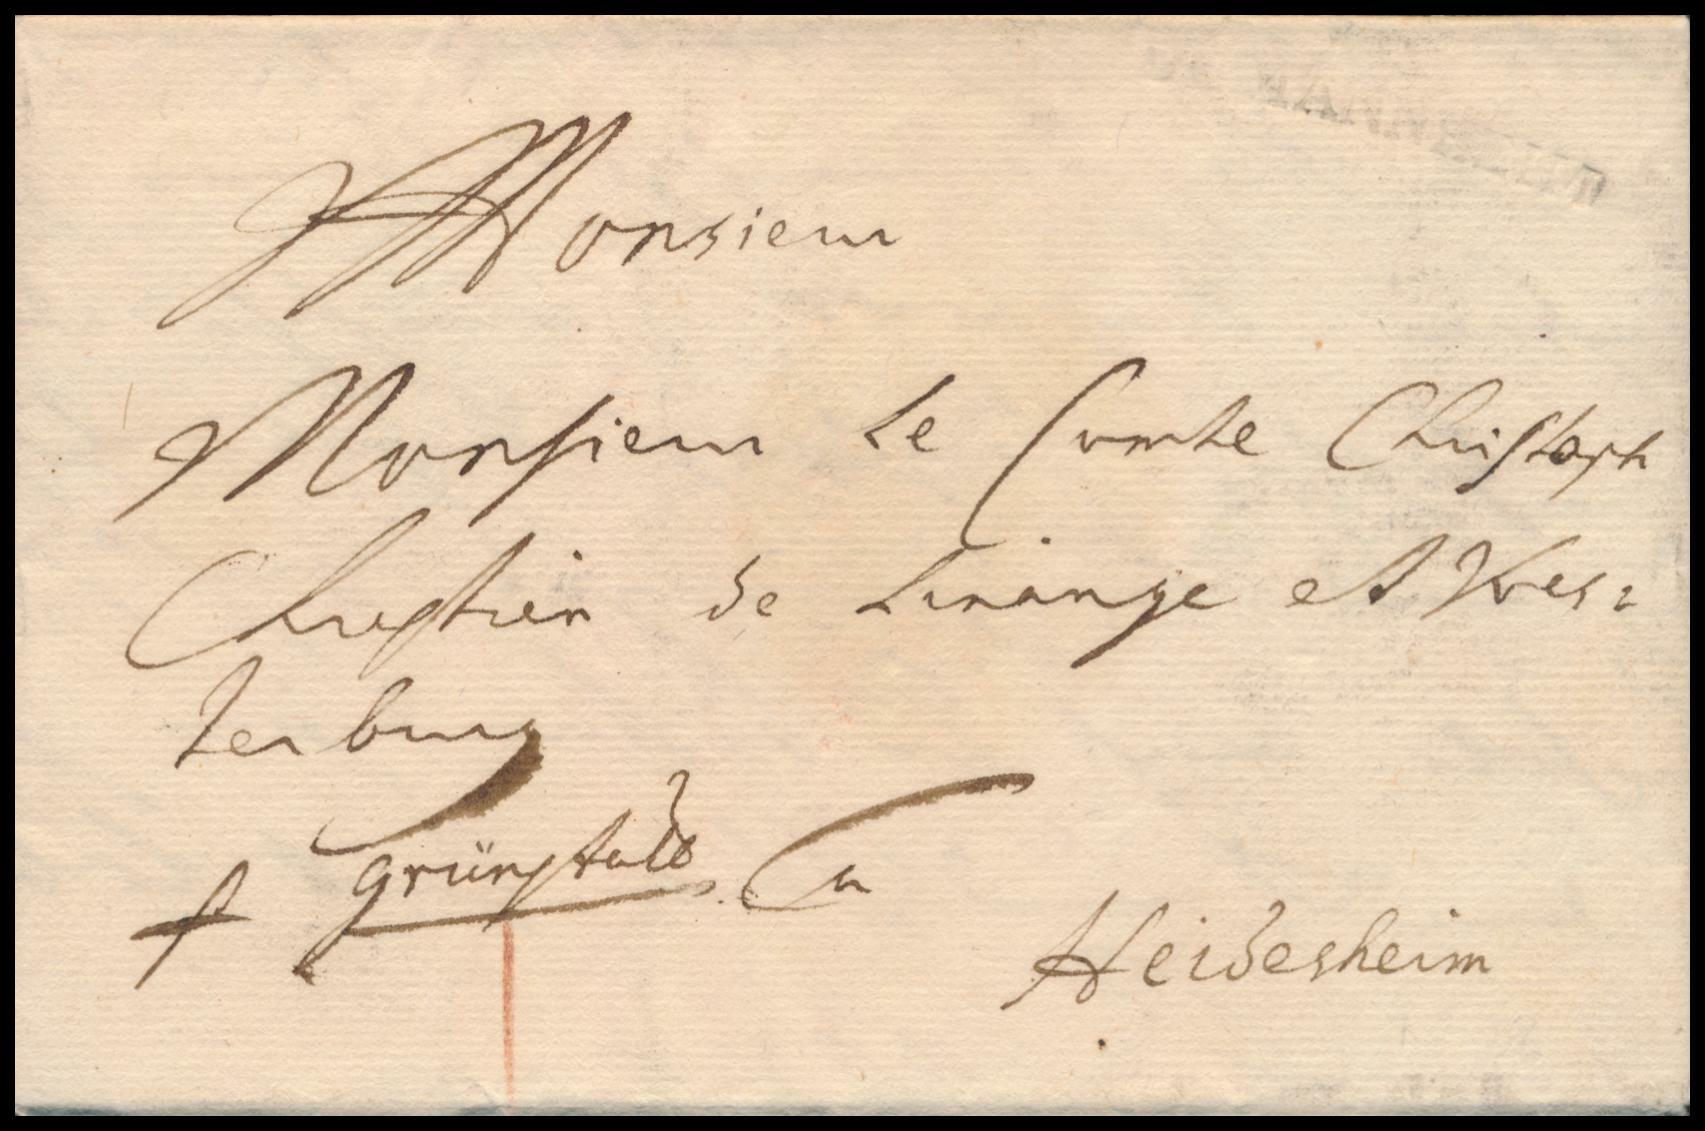 Monsieur
Monsieur Le Comte Christoph
Chrestien de Linange et Wes=
terburg
Grünstadt a
Heidesheim